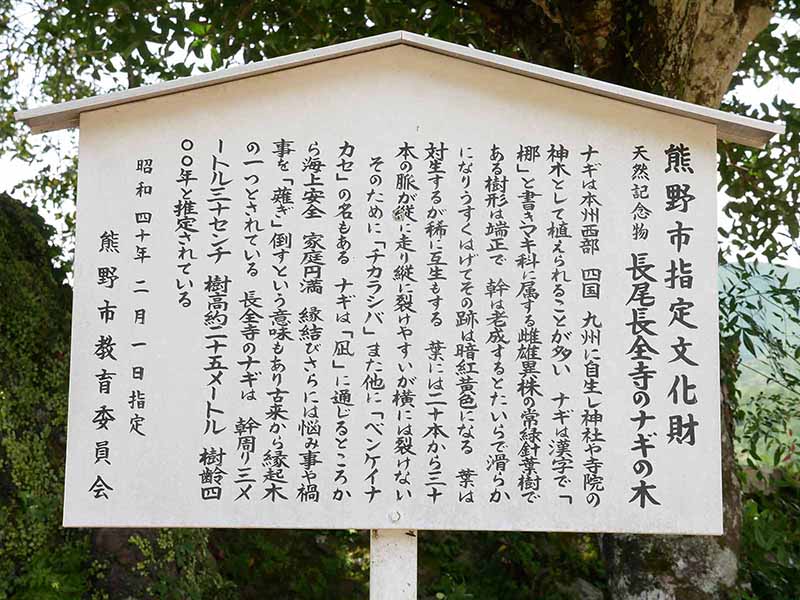 熊野市指定文化財
天然記念物 長尾長全寺のナギの木
ナギは本州西部 四国 九州に自生し神社や寺院の
神木として植えられることが多い ナギは漢字で「
梛」と書きマキ科に属する雌雄異株の常緑針葉樹で
ある樹形は端正で 幹は老成するとたいらで滑らか
になりうすくはげてその跡は暗紅黄色になる 葉は
対生するが稀に互生もする 葉には二十本から三十
本の脈が縦に走り縦に裂けやすいが横には裂けない
そのために「チカラシバ」また他に「ベンケイナ
カセ」の名もある ナギは「凪」に通じるところか
ら海上安全 家庭円満 縁結びさらには悩み事や禍
事を「薙ぎ」倒すという意味もあり古来から縁起木
の一つとされている 長全寺のナギは 幹周り三メ
ートル三十センチ 樹高約二十五メートル 樹齢四
〇〇年と推定されている
昭和 四十年 二月 一日指定
熊野市教育委員会